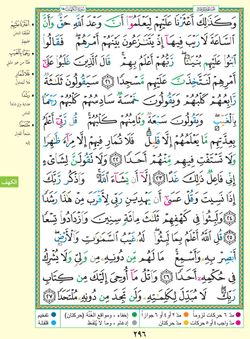 وَكَذَٰلِكَ أَعْثَرْنَا عَلَيْهِمْ لِيَعْلَمُوٓا۟ أَنَّ وَعْدَ ٱللَّهِ حَقٌّ وَأَنَّ
ٱلسَّاعَةَ لَا رَيْبَ فِيهَآ إِذْ يَتَنَٰزَعُونَ بَيْنَهُمْ أَمْرَهُمْ ۖ فَقَالُوا۟
ٱبْنُوا۟ عَلَيْهِم بُنْيَٰنًا ۖ رَّبُّهُمْ أَعْلَمُ بِهِمْ ۚ قَالَ ٱلَّذِينَ غَلَبُوا۟ عَلَىٰٓ
أَمْرِهِمْ لَنَتَّخِذَنَّ عَلَيْهِم مَّسْجِدًا ٢١ سَيَقُولُونَ ثَلَٰثَةٌ
رَّابِعُهُمْ كَلْبُهُمْ وَيَقُولُونَ خَمْسَةٌ سَادِسُهُمْ كَلْبُهُمْ
رَجْمًۢا بِٱلْغَيْبِ ۖ وَيَقُولُونَ سَبْعَةٌ وَثَامِنُهُمْ كَلْبُهُمْ ۚ قُل رَّبِّىٓ أَعْلَمُ
بِعِدَّتِهِم مَّا يَعْلَمُهُمْ إِلَّا قَلِيلٌ ۗ فَلَا تُمَارِ فِيهِمْ إِلَّا مِرَآءً ظَٰهِرًا
وَلَا تَسْتَفْتِ فِيهِم مِّنْهُمْ أَحَدًا ٢٢ وَلَا تَقُولَنَّ لِشَا۟ىْءٍ إِنِّى
فَاعِلٌ ذَٰلِكَ غَدًا ٢٣ إِلَّآ أَن يَشَآءَ ٱللَّهُ ۚ وَٱذْكُر رَّبَّكَ
إِذَا نَسِيتَ وَقُلْ عَسَىٰٓ أَن يَهْدِيَنِ رَبِّى لِأَقْرَبَ مِنْ هَٰذَا رَشَدًا
٢٤ وَلَبِثُوا۟ فِى كَهْفِهِمْ ثَلَٰثَ مِا۟ئَةٍ سِنِينَ وَٱزْدَادُوا۟ تِسْعًا
٢٥ قُلِ ٱللَّهُ أَعْلَمُ بِمَا لَبِثُوا۟ ۖ لَهُۥ غَيْبُ ٱلسَّمَٰوَٰتِ وَٱلْأَرْضِ ۖ
أَبْصِرْ بِهِۦ وَأَسْمِعْ ۚ مَا لَهُم مِّن دُونِهِۦ مِن وَلِىٍّ وَلَا يُشْرِكُ
فِى حُكْمِهِۦٓ أَحَدًا ٢٦ وَٱتْلُ مَآ أُوحِىَ إِلَيْكَ مِن كِتَابِ
رَبِّكَ ۖ لَا مُبَدِّلَ لِكَلِمَٰتِهِۦ وَلَن تَجِدَ مِن دُونِهِۦ مُلْتَحَدًا ٢٧
الكهف
٢٩٦